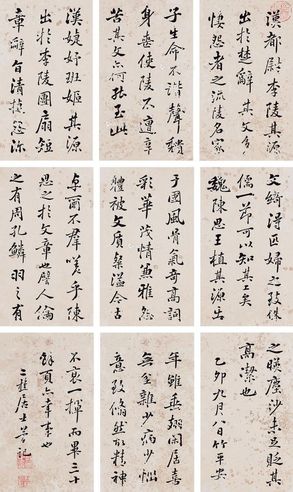 漢都尉李陵其源
出於楚辭其文多
悽怨者之流陵名家
子生命不諧聲頹
身喪使陵不遭辛
苦其文亦何能至此
漢婕妤班姬其源
出於李陵團扇短
章辭旨清捷怨深
文綺得匹婦之致侏
儒一節可以知其工矣
魏陳思王植其源出
于國風骨氣奇高詞
彩華茂情兼雅怨
體被文質粲溢今古
卓爾不群嗟乎陳
思之於文章也譬人倫
之有周孔鱗羽之有
之暎塵沙未足貶其
高潔也
乙卯九月八日竹平安
年雖垂閒居喜
無多難少病少惱
意致翛然精神
不衰一揮而畢三十
餘頁亦幸事也
居士筆記